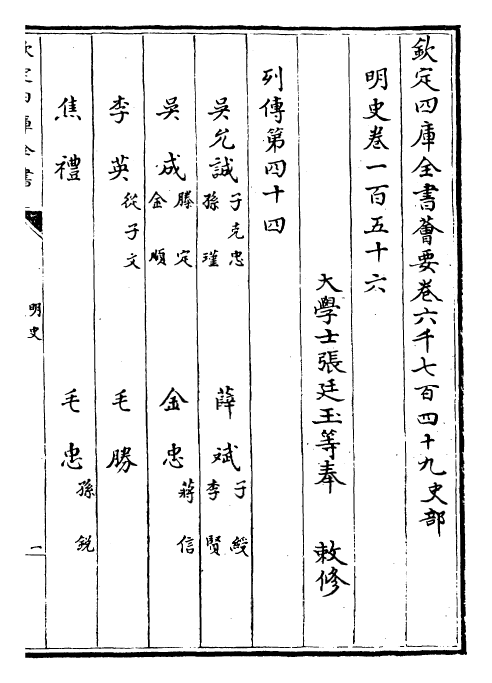 欽定四庫全書薈要卷六千七百四十九史部
明史卷一百五十六
大學士張廷玉等奉 敕修
列傳第四十四
吳允誠 子克忠 孫瑾 薛斌 子綬 李賢
吳成 滕定 金順 金忠 蔣信
李英 從子文 毛勝
焦禮 毛忠 孫銳
欽定四庫全書
明史
一